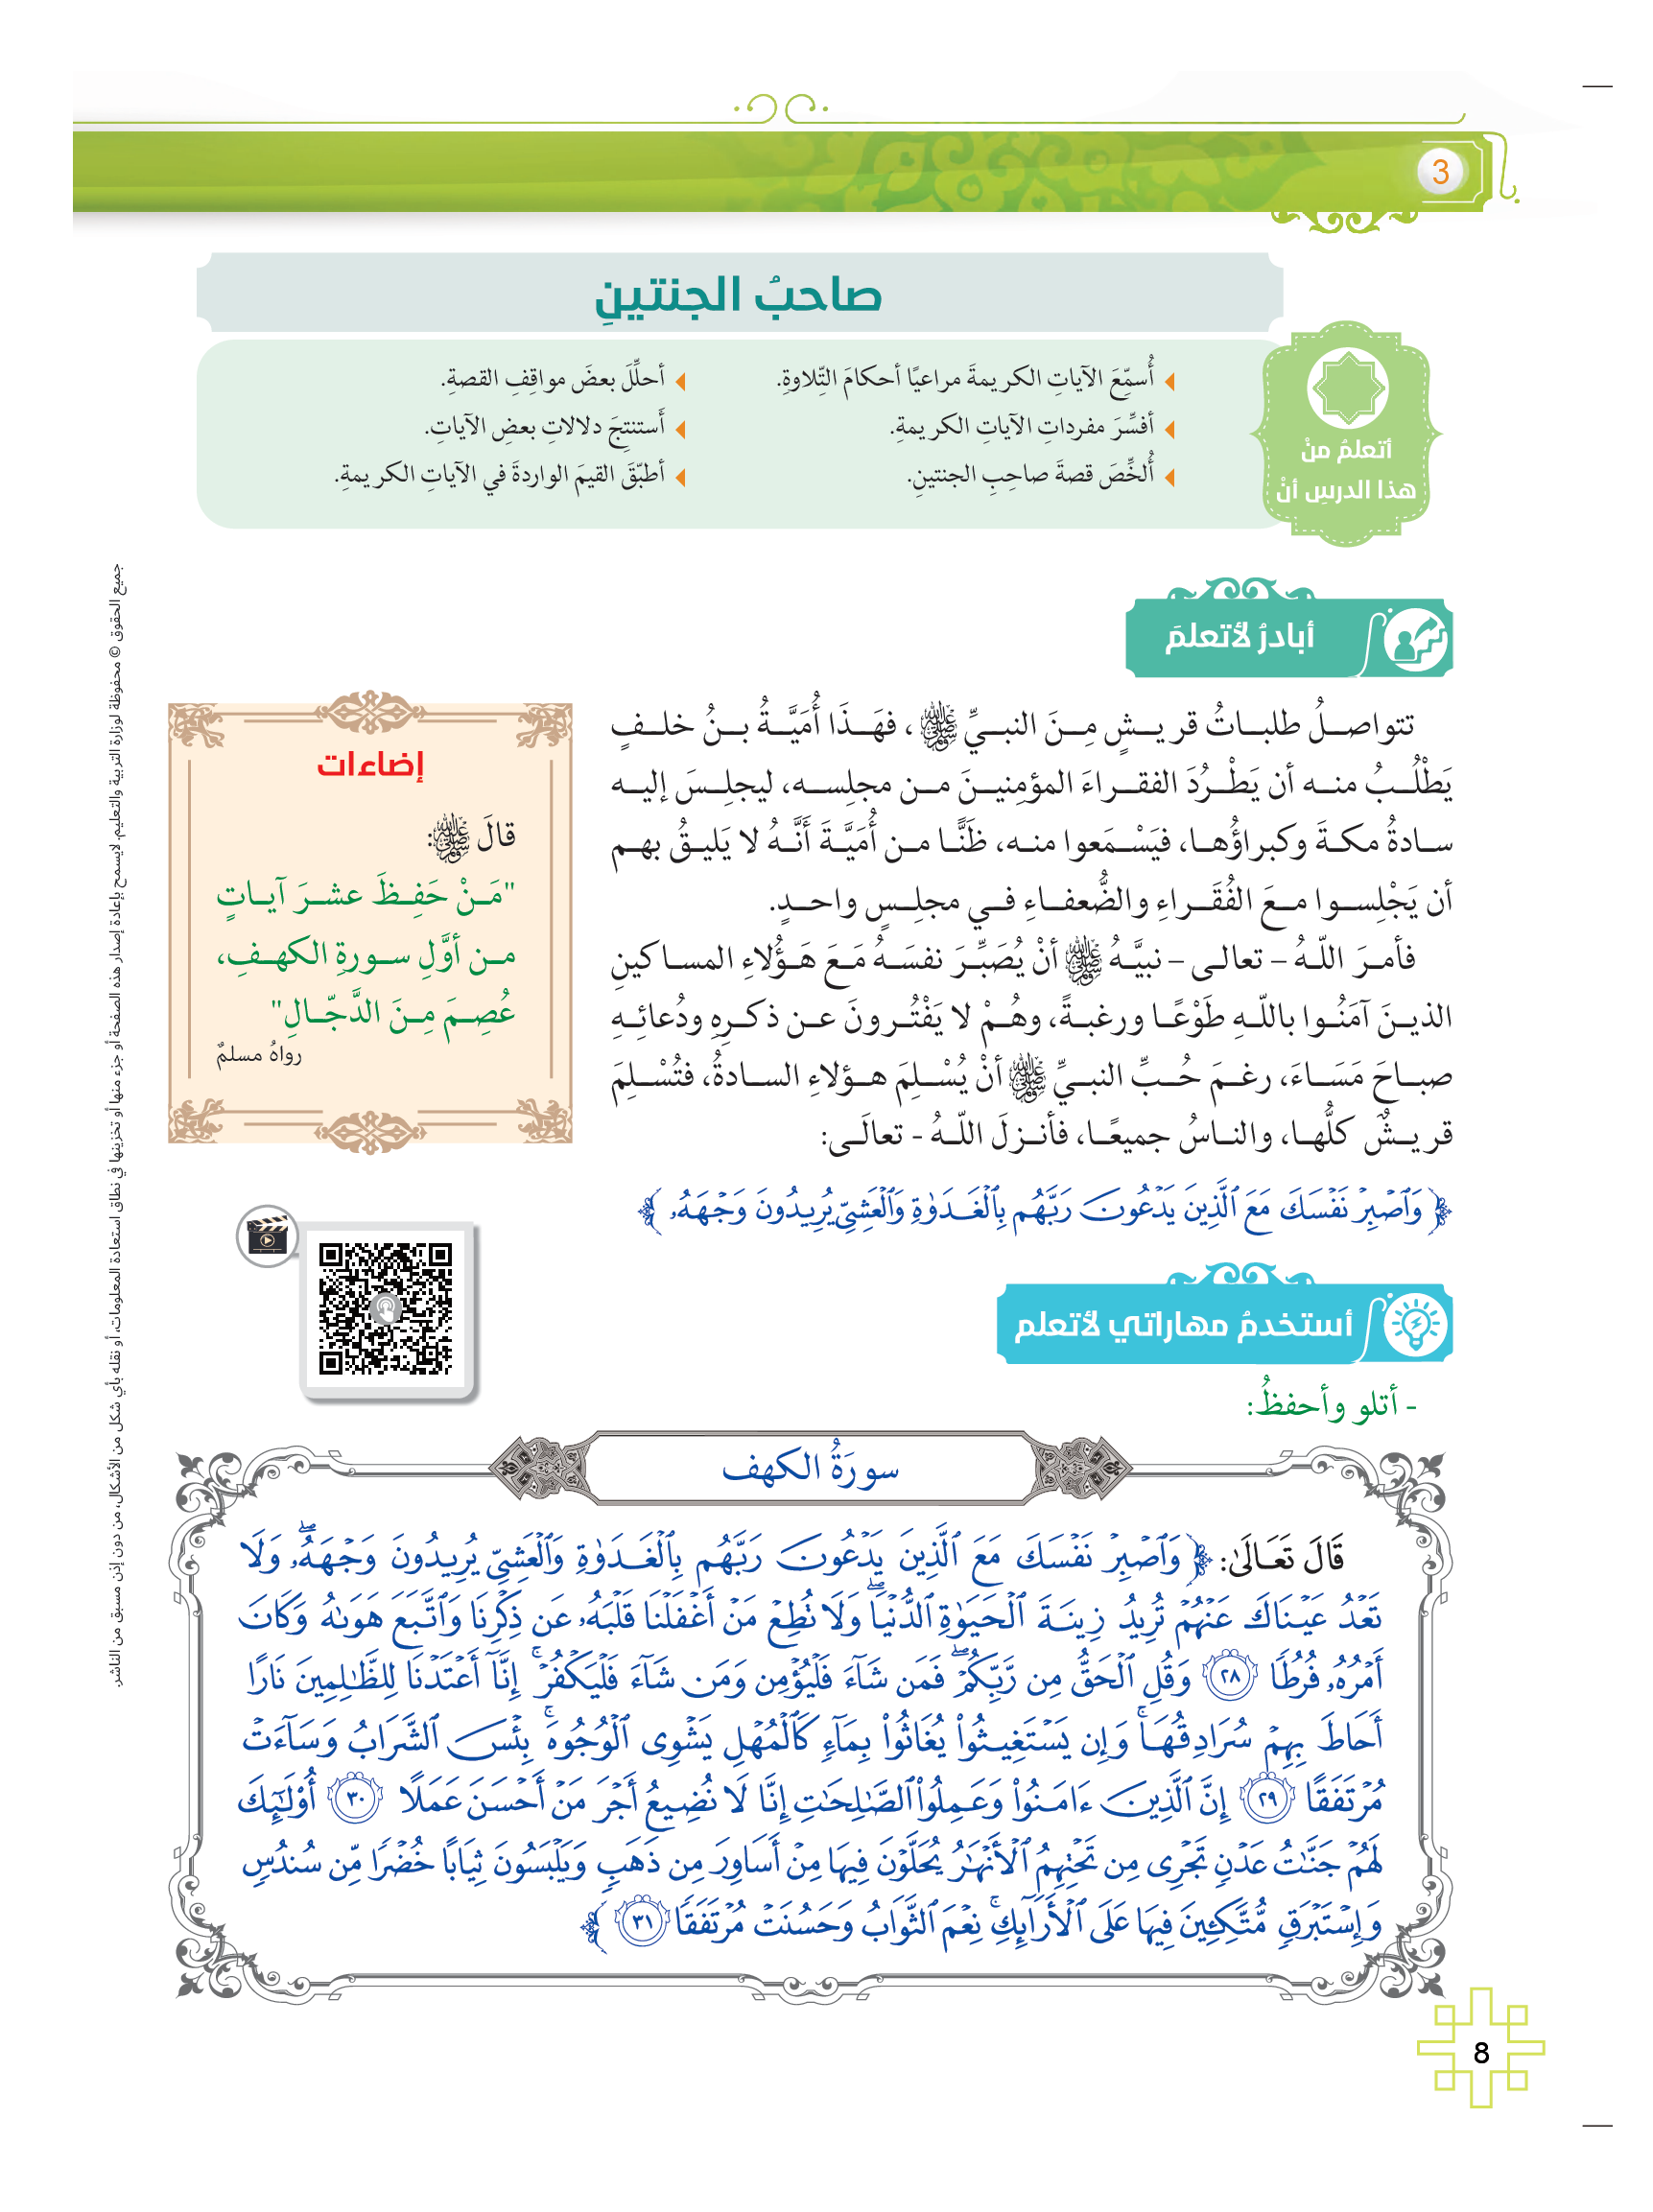 3
صاحبُ الجنتينِ
أتعلمُ منْ
هذا الدرسِ أنْ
أُسمِّعَ الآياتِ الكريمةَ مراعيًا أحكامَ التِّلاوةِ.
أفسِّرَ مفرداتِ الآياتِ الكريمةِ.
أُلخِّصَ قصةَ صاحِبِ الجنتينِ.
أحلِّلَ بعضَ مواقِفِ القصةِ.
أَستنتِجَ دلالاتِ بعضِ الآياتِ.
أطبّقَ القيمَ الواردةَ في الآياتِ الكريمةِ.
أبادرُ لأتعلمَ
تتواصلُ طلباتُ قريشٍ مِنَ النبيِّ ﷺ، فهَذَا أُمَيَّةُ بنُ خلفٍ
يَطْلُبُ منه أن يَطْرُدَ الفقراءَ المؤمِنينَ من مجلِسه، ليجلِسَ إليه
سادةُ مكةَ وكبراؤُها، فيَسْمَعوا منه، ظَنًّا من أُمَيَّةَ أَنَّهُ لا يَليقُ بهم
أن يَجْلِسوا معَ الفُقَراءِ والضُّعفاءِ في مجلِسٍ واحدٍ.
فأمرَ اللّهُ – تعالى – نبيَّهُ ﷺ أنْ يُصَبِّرَ نفسَهُ مَعَ هَؤُلاءِ المساكينِ
الذينَ آمَنُوا باللّهِ طَوْعًا ورغبةً، وهُمْ لا يَفْتُرونَ عن ذكرِهِ ودُعائِهِ
صباحَ مَسَاءَ، رغمَ حُبِّ النبيِّ ﷺ أنْ يُسْلِمَ هؤلاءِ السادةُ، فتُسْلِمَ
قريشٌ كلُّها، والناسُ جميعًا، فأنزلَ اللّهُ - تعالَى:
﴿ وَٱصۡبِرۡ نَفۡسَكَ مَعَ ٱلَّذِينَ يَدۡعُونَ رَبَّهُم بِٱلۡغَدَوٰةِ وَٱلۡعَشِيِّ يُرِيدُونَ وَجۡهَهُۥ ﴾
إضاءات
قالَ ﷺ:
"مَنْ حَفِظَ عشرَ آياتٍ
من أوَّلِ سورةِ الكهفِ،
عُصِمَ مِنَ الدَّجّالِ"
رواهُ مسلمٌ
أستخدمُ مهاراتي لأتعلم
- أتلو وأحفظُ:
سورَةُ الكهف
قَالَ تَعَالَىٰ: ﴿ وَٱصۡبِرۡ نَفۡسَكَ مَعَ ٱلَّذِينَ يَدۡعُونَ رَبَّهُم بِٱلۡغَدَوٰةِ وَٱلۡعَشِيِّ يُرِيدُونَ وَجۡهَهُۥۖ وَلَا
تَعۡدُ عَيۡنَاكَ عَنۡهُمۡ تُرِيدُ زِينَةَ ٱلۡحَيَوٰةِ ٱلدُّنۡيَاۖ وَلَا تُطِعۡ مَنۡ أَغۡفَلۡنَا قَلۡبَهُۥ عَن ذِكۡرِنَا وَٱتَّبَعَ هَوَىٰهُ وَكَانَ
أَمۡرُهُۥ فُرُطٗا ٢٨ وَقُلِ ٱلۡحَقُّ مِن رَّبِّكُمۡۖ فَمَن شَآءَ فَلۡيُؤۡمِن وَمَن شَآءَ فَلۡيَكۡفُرۡۚ إِنَّآ أَعۡتَدۡنَا لِلظَّٰلِمِينَ نَارًا
أَحَاطَ بِهِمۡ سُرَادِقُهَاۚ وَإِن يَسۡتَغِيثُواْ يُغَاثُواْ بِمَآءٖ كَٱلۡمُهۡلِ يَشۡوِي ٱلۡوُجُوهَۚ بِئۡسَ ٱلشَّرَابُ وَسَآءَتۡ
مُرۡتَفَقًا ٢٩ إِنَّ ٱلَّذِينَ ءَامَنُواْ وَعَمِلُواْ ٱلصَّٰلِحَٰتِ إِنَّا لَا نُضِيعُ أَجۡرَ مَنۡ أَحۡسَنَ عَمَلًا ٣٠ أُوْلَٰٓئِكَ
لَهُمۡ جَنَّٰتُ عَدۡنٖ تَجۡرِي مِن تَحۡتِهِمُ ٱلۡأَنۡهَٰرُ يُحَلَّوۡنَ فِيهَا مِنۡ أَسَاوِرَ مِن ذَهَبٖ وَيَلۡبَسُونَ ثِيَابًا خُضۡرٗا مِّن سُندُسٖ
وَإِسۡتَبۡرَقٖ مُّتَّكِـِٔينَ فِيهَا عَلَى ٱلۡأَرَآئِكِۚ نِعۡمَ ٱلثَّوَابُ وَحَسُنَتۡ مُرۡتَفَقٗا ٣١ ﴾
جميع الحقوق © محفوظة لوزارة التربية والتعليم. لايسمح بإعادة إصدار هذه الصفحة أو جزء منها أو تخزينها في نطاق استعادة المعلومات، أو نقله بأي شكل من الأشكال، من دون إذن مسبق من الناشر.
8